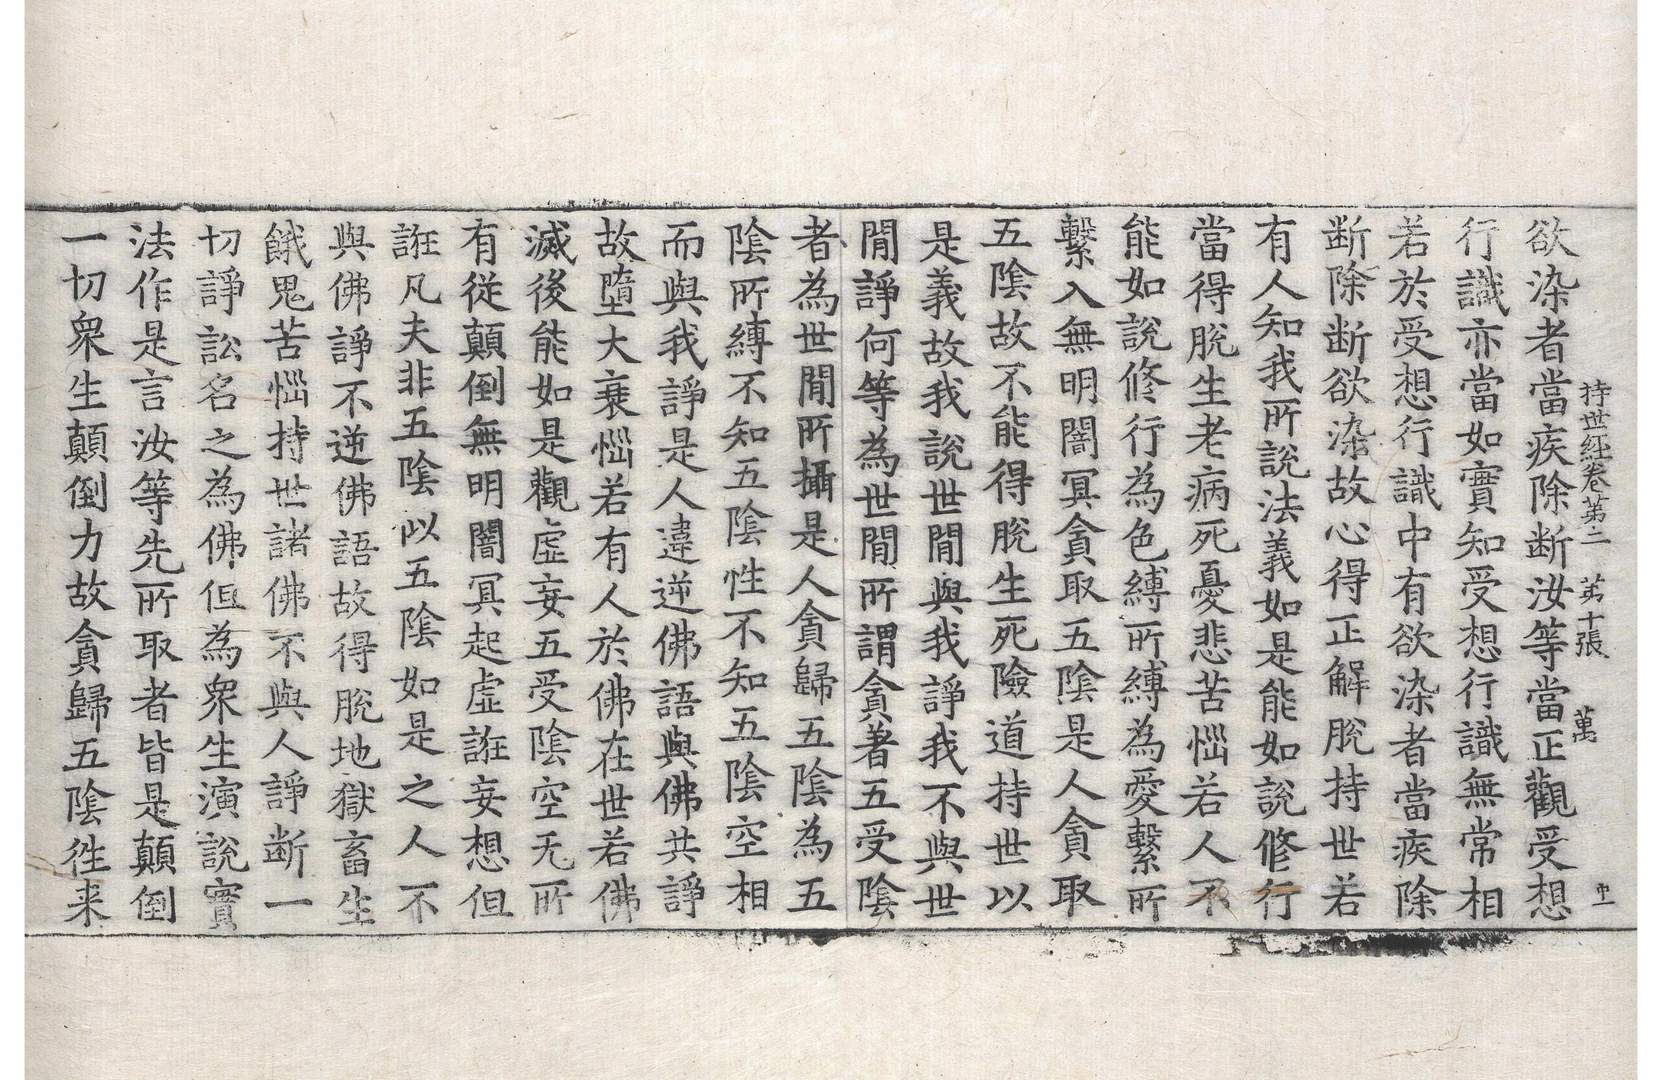 持世經卷第二 第十張 萬
欲染者當疾除断汝等當正觀受想
行識亦當如實知受想行識無常相
若於受想行識中有欲染者當疾除
断除断欲染故心得正解脫持世若
有人知我所說法義如是能如說修行
當得脫生老病死憂悲苦惱若人不
能如說修行為色縛所縛為愛繫所
繫入無明闇冥貪取五陰是人貪取
五陰故不能得脫生死險道持世以
是義故我說世間與我諍我不與世
間諍何等為世間所謂貪著五受陰
者為世間所攝是人貪歸五陰為五
陰所縛不知五陰性不知五陰空相
而與我諍是人違逆佛語與佛共諍
故墮大衰惱若有人於佛在世若佛
滅後能如是觀虛妄五受陰空无所
有從顛倒無明闇冥起虛誑妄想但
誑凡夫非五陰似五陰如是之人不
與佛諍不逆佛語故得脫地獄畜生
餓鬼苦惱持世諸佛不與人諍断一
切諍訟名之為佛但為衆生演說實
法作是言汝等先所取者皆是顛倒
一切衆生顛倒力故貪歸五陰徃来